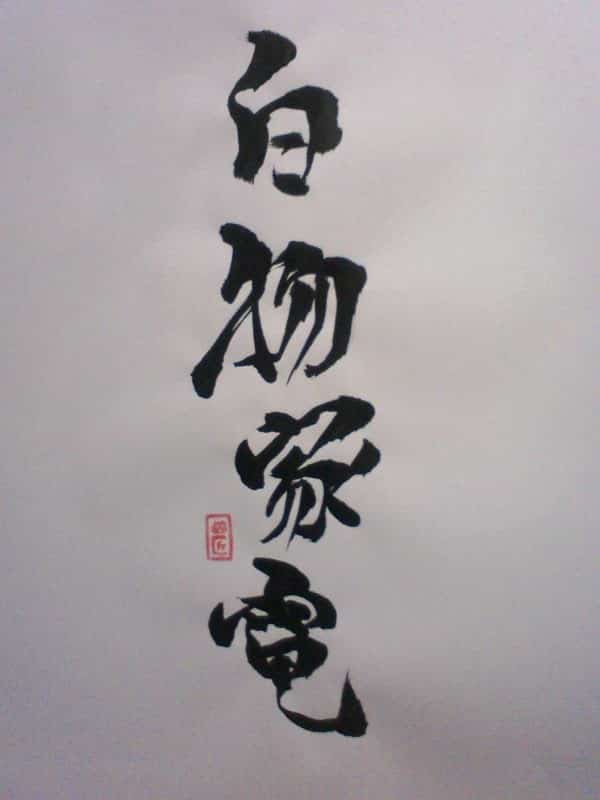 白物家電